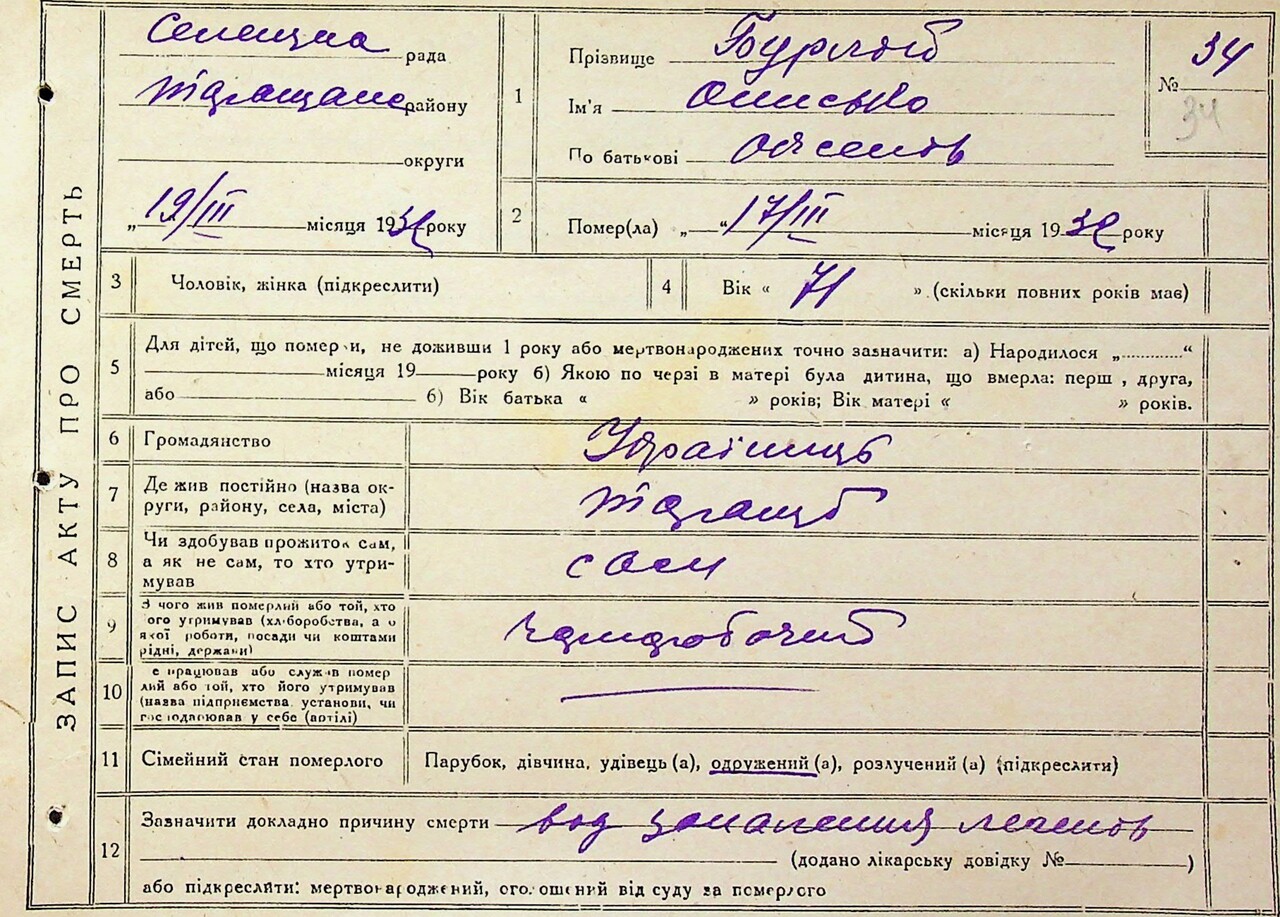 ЗАПИС АКТУ ПРО СМЕРТЬ
Селещна рада
району
округи
„19/III місяця 1932 року
1
Прізвище Бурлой
Ім'я
По батькові
№ 34
34
2 Помер(ла) „ “ 17/III місяця 1932 року
3 Чоловік, жінка (підкреслити)
4 Вік « 71 » (скільки повних років мав)
5 Для дітей, що померли, не доживши 1 року або мертвонароджених точно зазначити: а) Народилося „ “
місяця 19 року б) Якою по черзі в матері була дитина, що вмерла: перш , друга,
або б) Вік батька « » років; Вік матері « » років.
6 Громадянство Українць
7 Де жив постійно (назва ок-
руги, району, села, міста)
8 Чи здобував прожиток сам,
а як не сам, то хто утри-
мував
сам
9 З чого жив померлий або той, хто
ого утримував (хліборобства, а о
якої роботи, посади чи коштами
рідні, держави)
10 е працював або служив помер
лий або той, хто його утримував
(назва підприємства, установи, чи
господарював у себе (артілі)
11 Сімейний стан померлого Парубок, дівчина, удівець (а), одружений (а), розлучений (а) (підкреслити)
12 Зазначити докладно причину смерти вод запаления легенов
(додано лікарську довідку № )
або підкреслити: мертвонароджений, оголошений від суду за померлого